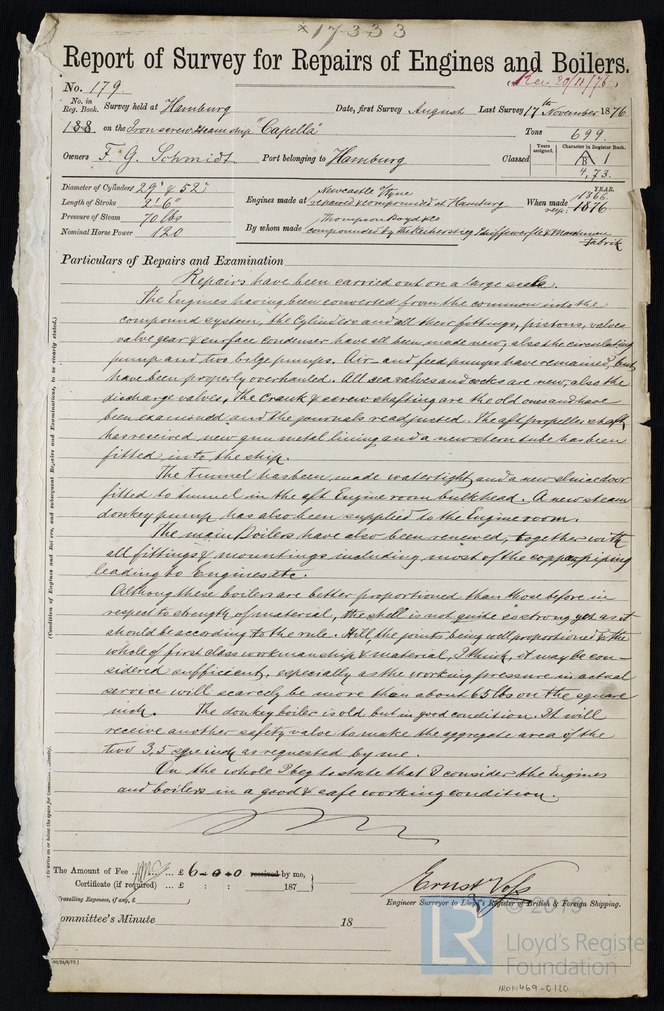 × 17333
Report of Survey for Repairs of Engines and Boilers.
(Rec 20/11/76)
No. 179
No. in Reg. Book. Survey held at Hamburg Date, first Survey August Last Survey 17th November 1876
188 on the Iron screw steam ship "Capella" Tons 699
Owners F. G. Schmidt Port belonging to Hamburg Classed Years assigned. Character in Register Book. A 1
B
4,73.
Diameter of Cylinders 29" & 52"
Length of Stroke 2' 6"
Pressure of Steam 70 lbs
Nominal Horse Power 120
Engines made at Newcastle Tyne
repaired & compounded at Hamburg When made YEAR. 1866
resp: 1876
By whom made Thompson Boyd & Co
compounded by the Reiherstieg Schiffswerfte & Maschinen
Fabrik
Particulars of Repairs and Examination
Repairs have been carried out on a large scale.
The Engines having been converted from the common into the
compound system, the Cylinders and all their fittings, pistons, valves
valve gear & surface condenser have all been made new, also the circulating
pump and two bilge pumps. Air and feed pumps have remained, but
have been properly overhauled. All sea valves and cocks are new, also the
discharge valves. The crank & screw shafting are the old ones and have
been examined and the journals readjusted. The aft propeller shaft
has received new gun metal lining and a new stern tube has been
fitted into the ship.
The tunnel has been made watertight and a new sluice door
fitted to tunnel in the aft Engine room bulkhead. A new steam
donkey pump has also been supplied to the Engine room.
The main Boilers have also been renewed, together with
all fittings & mountings including most of the copper piping
leading to Engines etc.
Although these boilers are better proportioned than those before in
respect to strength of material, the shell is not quite so strong yet as it
should be according to the rule. Still the joints being well proportioned & the
whole of first class workmanship & material, I think, it may be con-
sidered sufficient, especially as the working pressure in actual
service will scarcely be more than about 65 lbs on the square
inch. The donkey boiler is old but in good condition. It will
receive another safety valve to make the aggregate area of the
two 3,5 sqre inch as requested by me.
On the whole I beg to state that I consider the Engines
and boilers in a good & safe working condition.
(Condition of Engines and Boilers, and subsequent Repairs and Examinations, to be clearly stated.)
The Amount of Fee ... £ 6-0-0 received by me,
Certificate (if required) ... £ : : 187
Travelling Expenses, if any, £
Ernst Voss
Engineer Surveyor to Lloyd's Register of British & Foreign Shipping.
ommittee's Minute 18
LR © 2019
Lloyd's Registe
Foundation
IRON469-0120